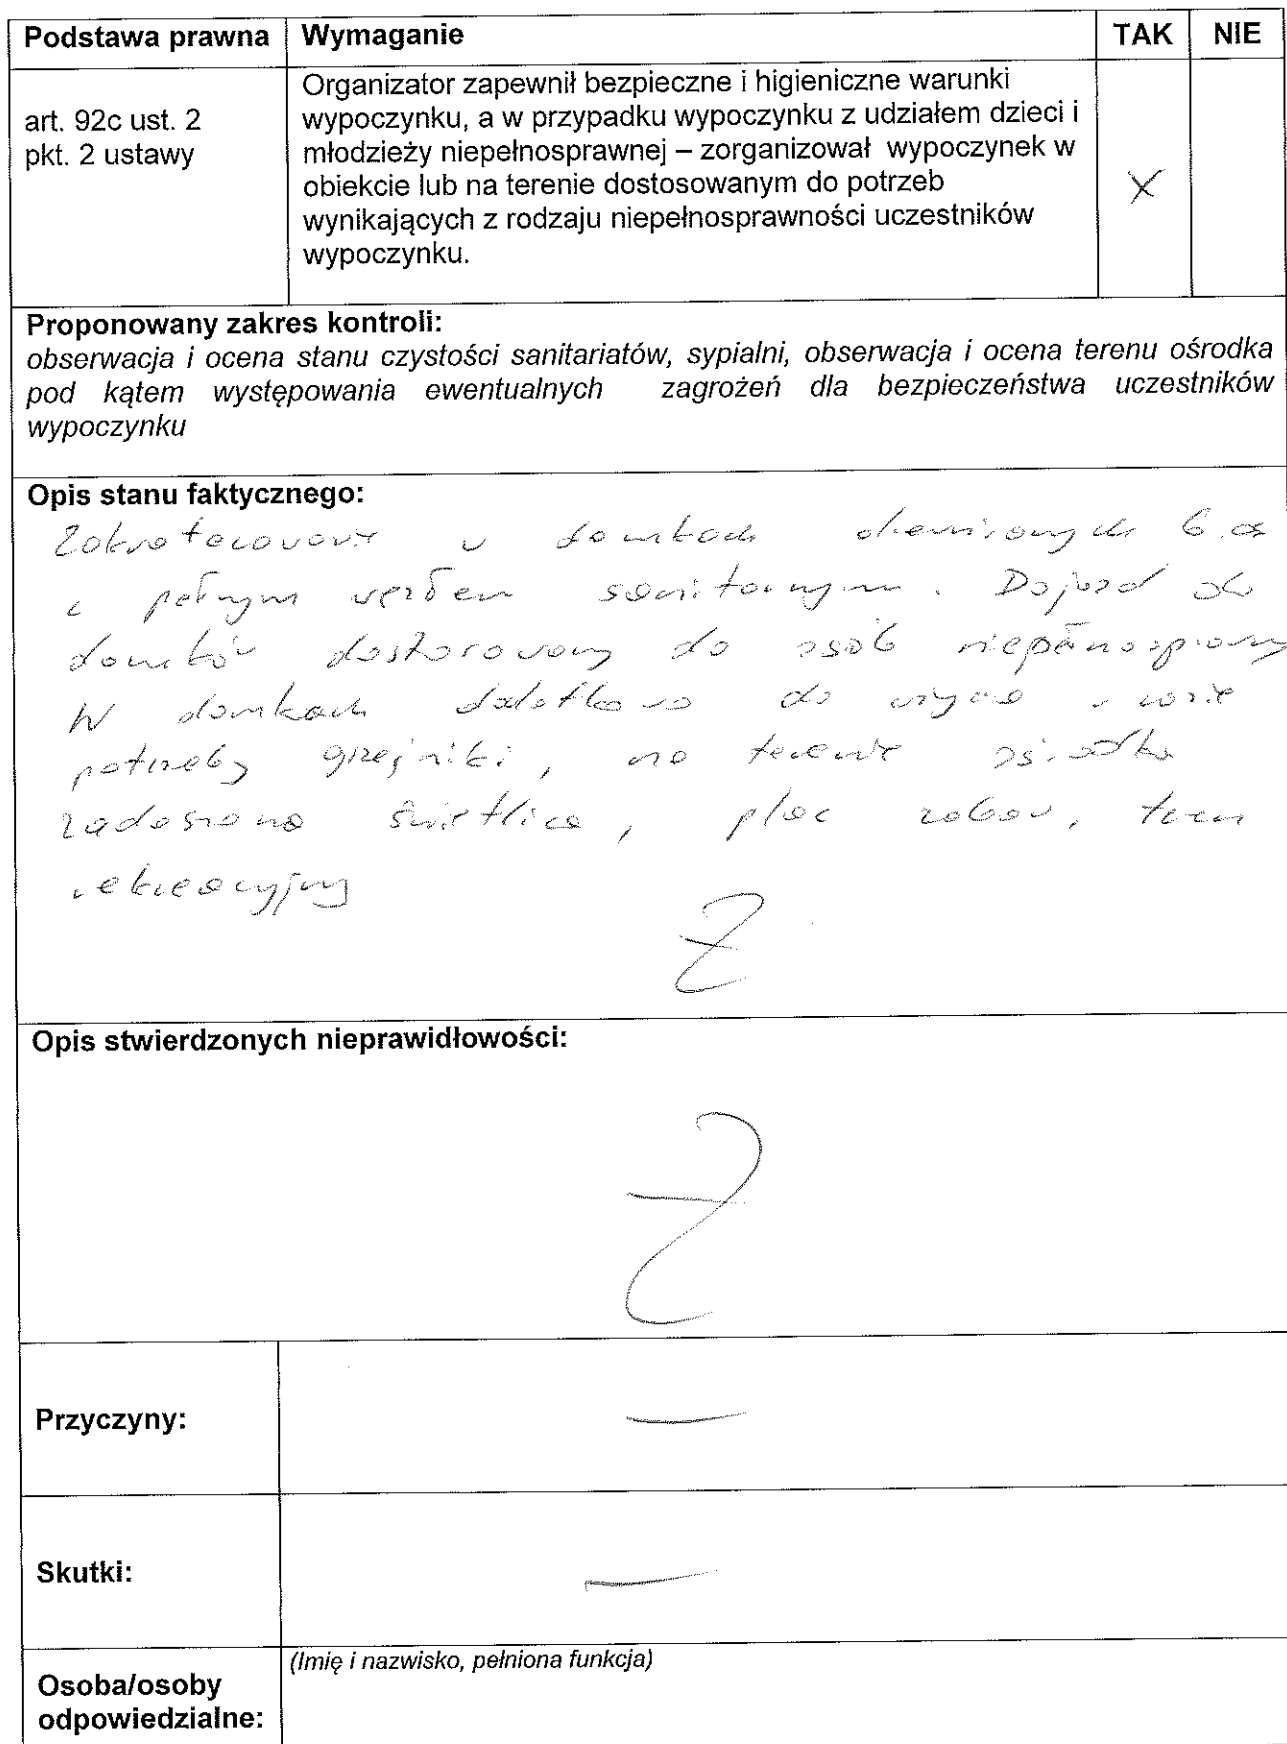 Podstawa prawna Wymaganie TAK NIE
art. 92c ust. 2
pkt. 2 ustawy
Organizator zapewnił bezpieczne i higieniczne warunki
wypoczynku, a w przypadku wypoczynku z udziałem dzieci i
młodzieży niepełnosprawnej – zorganizował wypoczynek w
obiekcie lub na terenie dostosowanym do potrzeb
wynikających z rodzaju niepełnosprawności uczestników
wypoczynku.
X
Proponowany zakres kontroli:
obserwacja i ocena stanu czystości sanitariatów, sypialni, obserwacja i ocena terenu ośrodka
pod kątem występowania ewentualnych zagrożeń dla bezpieczeństwa uczestników
wypoczynku
Opis stanu faktycznego:
Zakwaterowanie w domkach 6.os
z pełnym węzłem sanitarnym. Dojazd do
domków dostosowany do osób
W domkach dodatkowo do użycia w razie
potrzeby grzejniki, na terenie ośrodka
zadaszona świetlica, plac zabaw, teren
rekreacyjny
Opis stwierdzonych nieprawidłowości:
Przyczyny: —
Skutki: —
Osoba/osoby
odpowiedzialne:
(Imię i nazwisko, pełniona funkcja)